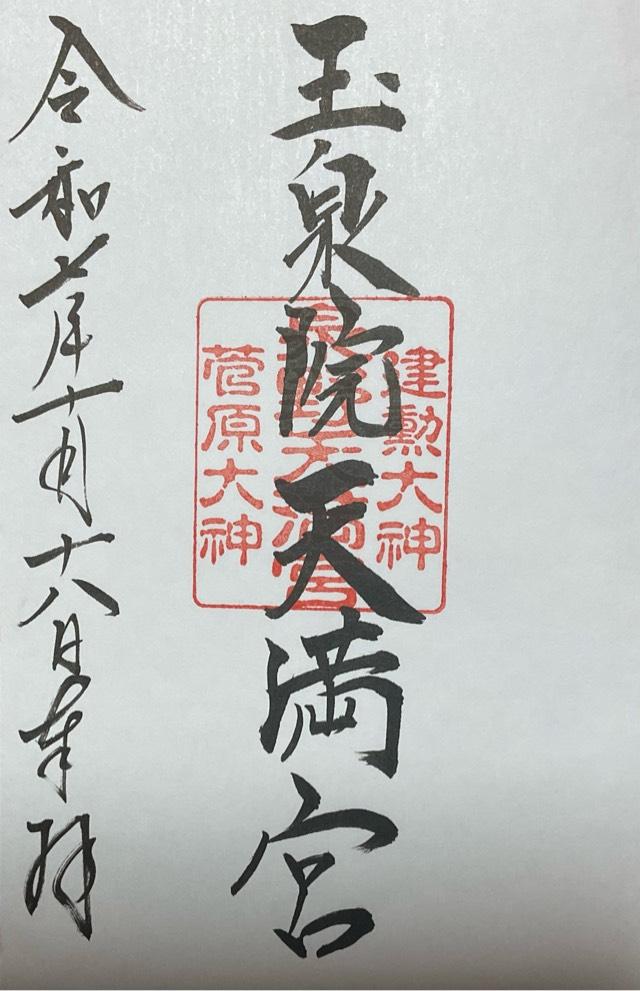 玉泉院天満宮
建勲大神
天満宮
菅原大神
令和七年十月十八日奉拝